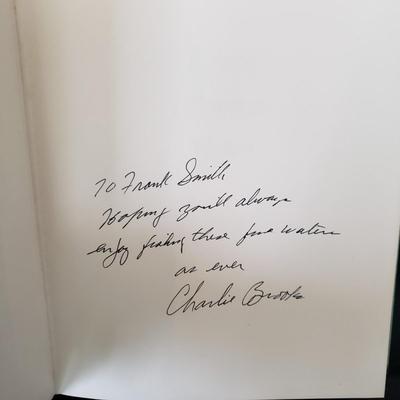 To Frank Smith,
Hoping you'll always
enjoy fishing these fine waters
as ever
Charlie Brooks